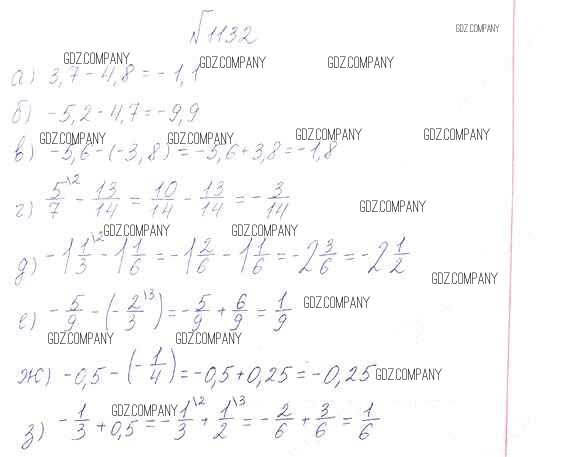 №1132
GDZ.COMPANY
GDZ.COMPANY GDZ.COMPANY GDZ.COMPANY
а) 3,7 - 4,8 = -1,1
б) -5,2 - 4,7 = -9,9
GDZ.COMPANY GDZ.COMPANY GDZ.COMPANY GDZ.COMPANY
в) -5,6 - (-3,8) = -5,6 + 3,8 = -1,8
г) 5/7 \2 - 13/14 = 10/14 - 13/14 = -3/14
GDZ.COMPANY
GDZ.COMPANY GDZ.COMPANY
д) -1 1/3 \2 - 1 1/6 = -1 2/6 - 1 1/6 = -2 3/6 = -2 1/2
GDZ.COMPANY
е) -5/9 - (-2/3 \3) = -5/9 + 6/9 = 1/9
GDZ.COMPANY
GDZ.COMPANY GDZ.COMPANY
ж) -0,5 - (-1/4) = -0,5 + 0,25 = -0,25
GDZ.COMPANY
GDZ.COMPANY
з) -1/3 + 0,5 = -1/3 \2 + 1/2 \3 = -2/6 + 3/6 = 1/6